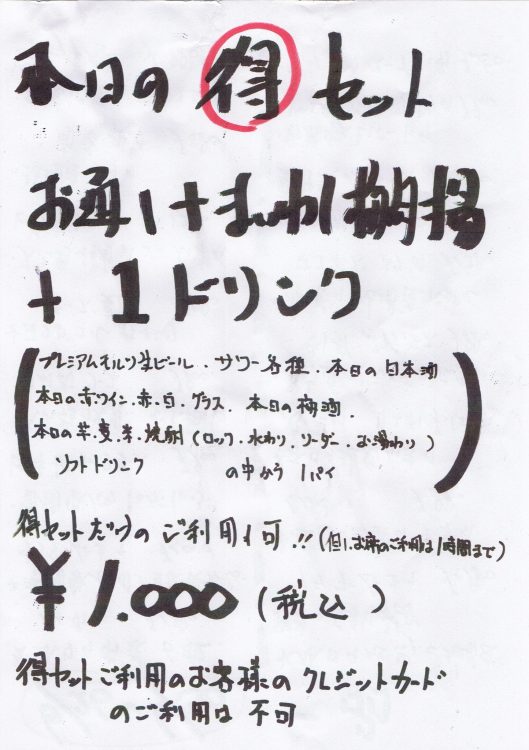 本日の 得 セット
お通し+まいわし朝揚
+ 1ドリンク
(プレミアムモルツ生ビール・サワー各種・本日の日本酒
本日の赤ワイン・赤・白・グラス・本日の梅酒・
本日の芋・麦・米・焼酎(ロック・水わり・ソーダー・お湯わり)
ソフトドリンク の中から1パイ)
得セットだけの ご利用も可!!(但し、お席のご利用は1時間まで)
¥1.000(税込)
得セットご利用のお客様の クレジットカード
のご利用は 不可